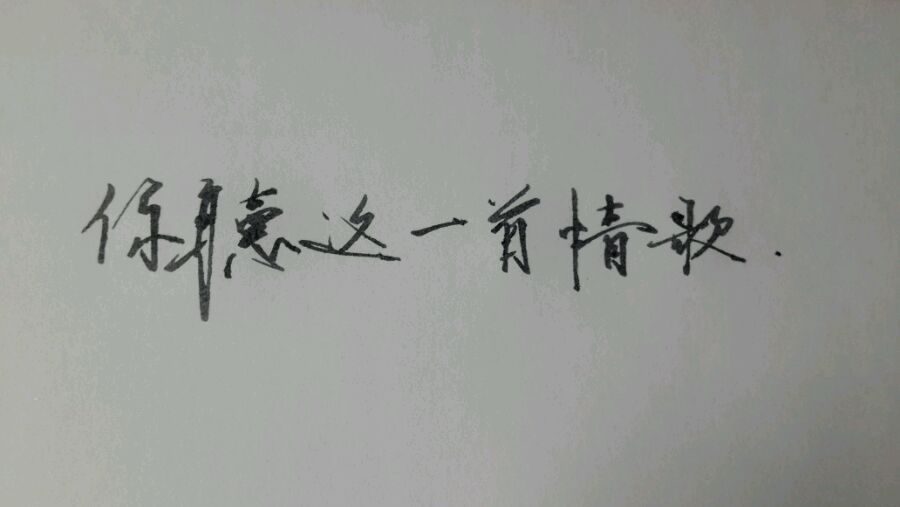 你聽这一首情歌.